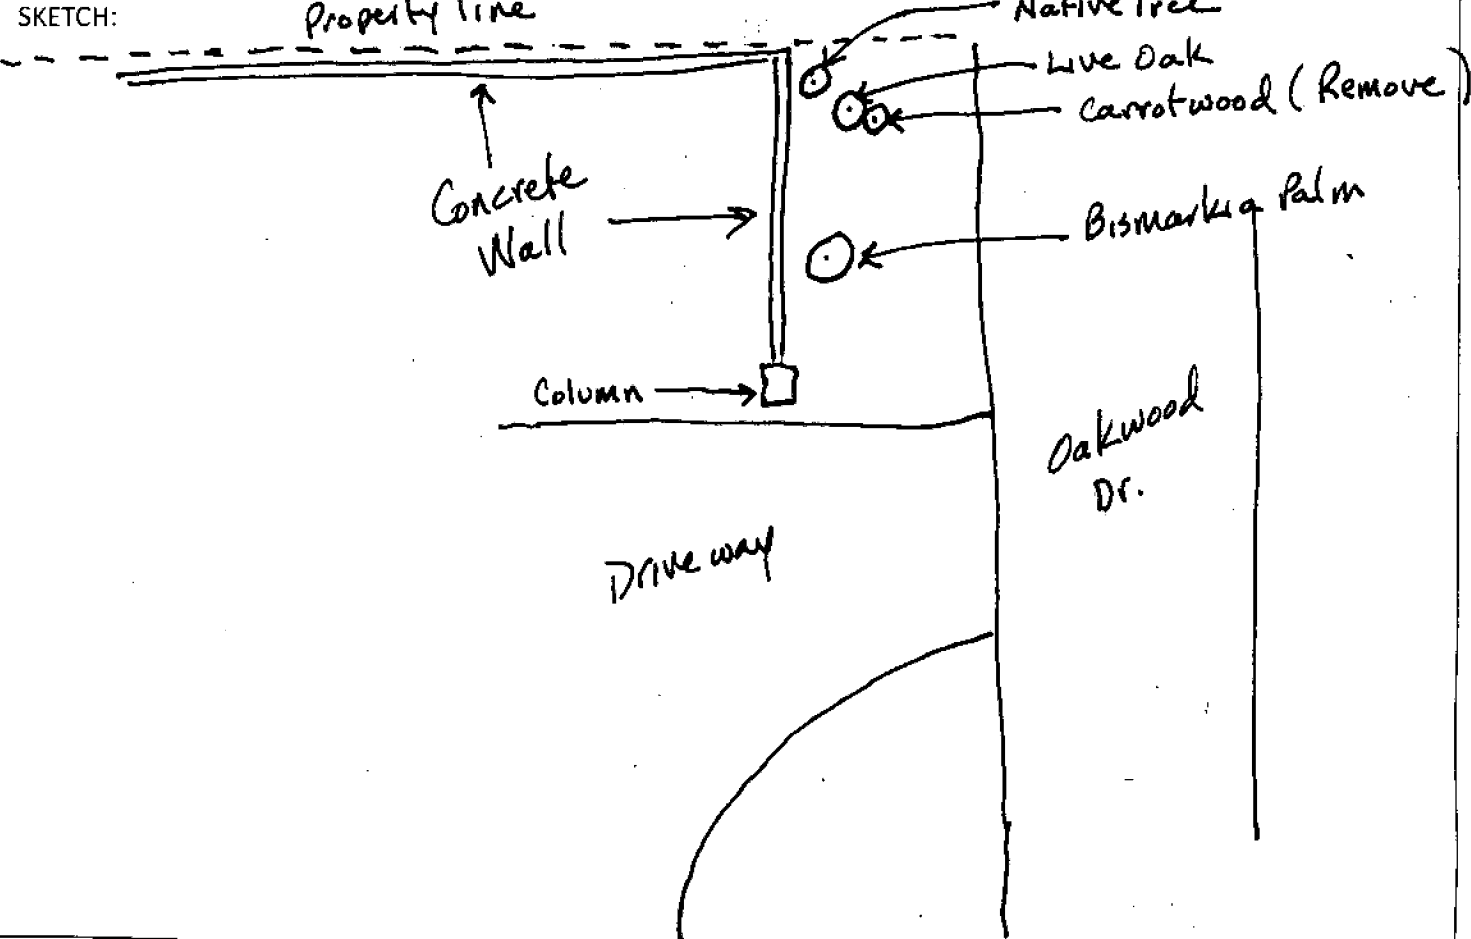 SKETCH:
Property line
Native Tree
Live Oak
Carrotwood (Remove)
Concrete
Wall
Bismarkia Palm
Column
Oakwood
Dr.
Driveway